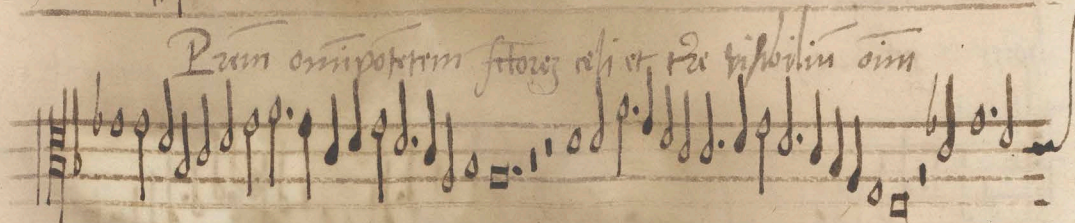 Prem omipotetem fctorez celi et tre visibiliu oim